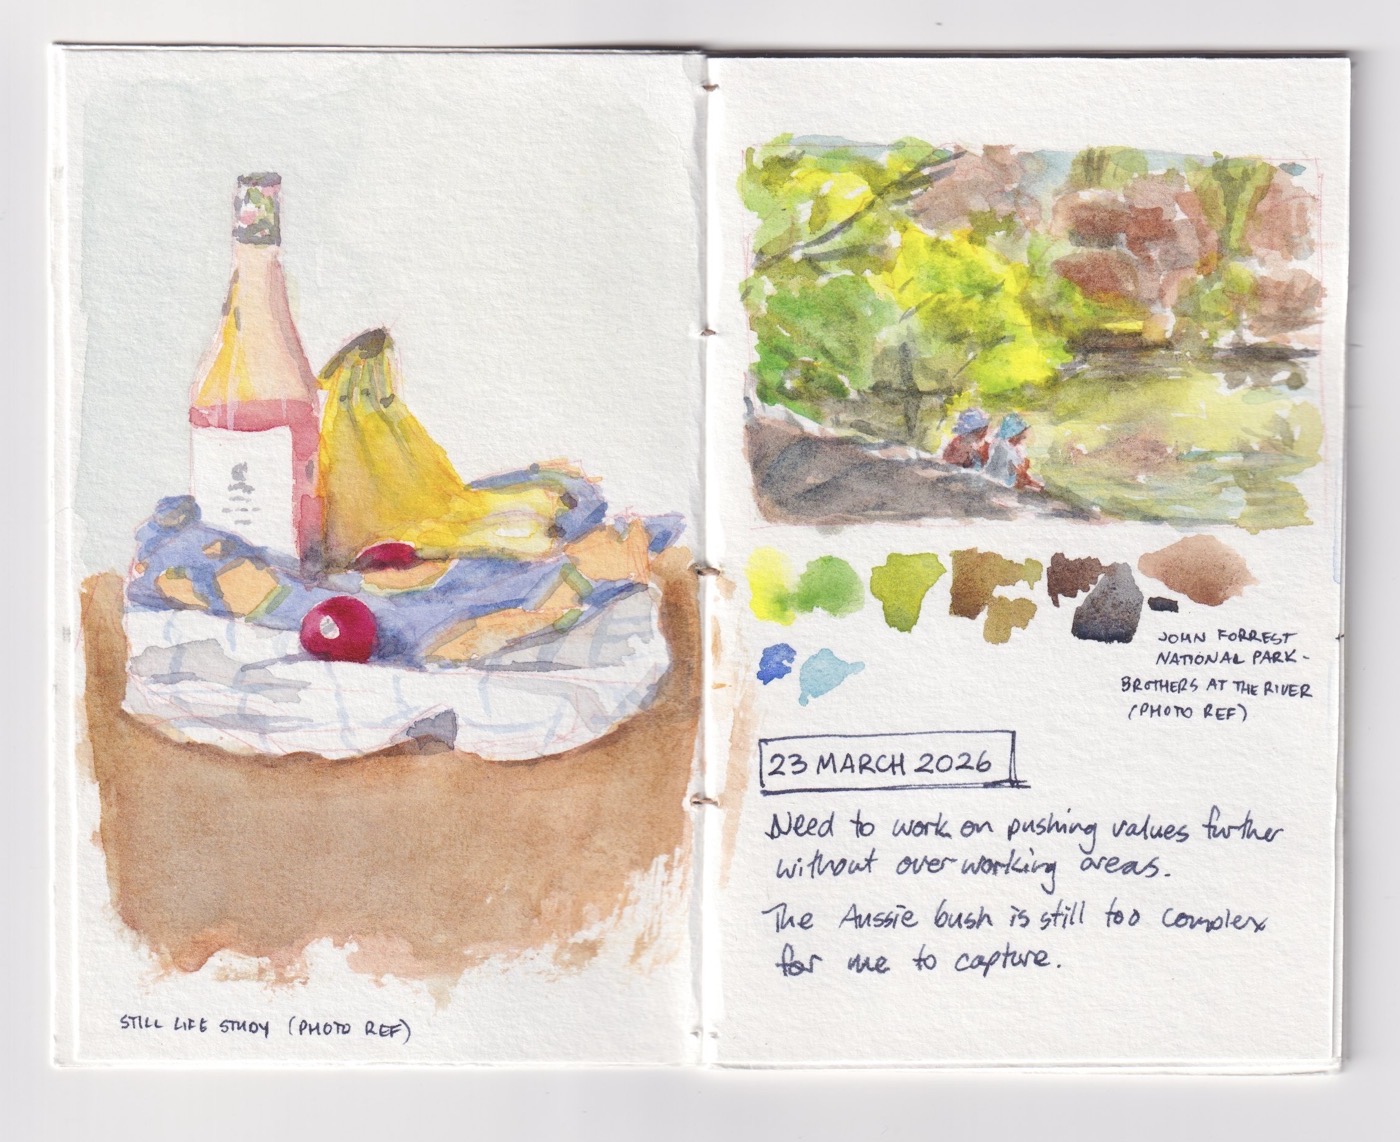 STILL LIFE STUDY (PHOTO REF)
JOHN FORREST
NATIONAL PARK -
BROTHERS AT THE RIVER
(PHOTO REF)
23 MARCH 2026
Need to work on pushing values further
without overworking areas.
The Aussie bush is still too complex
for me to capture.